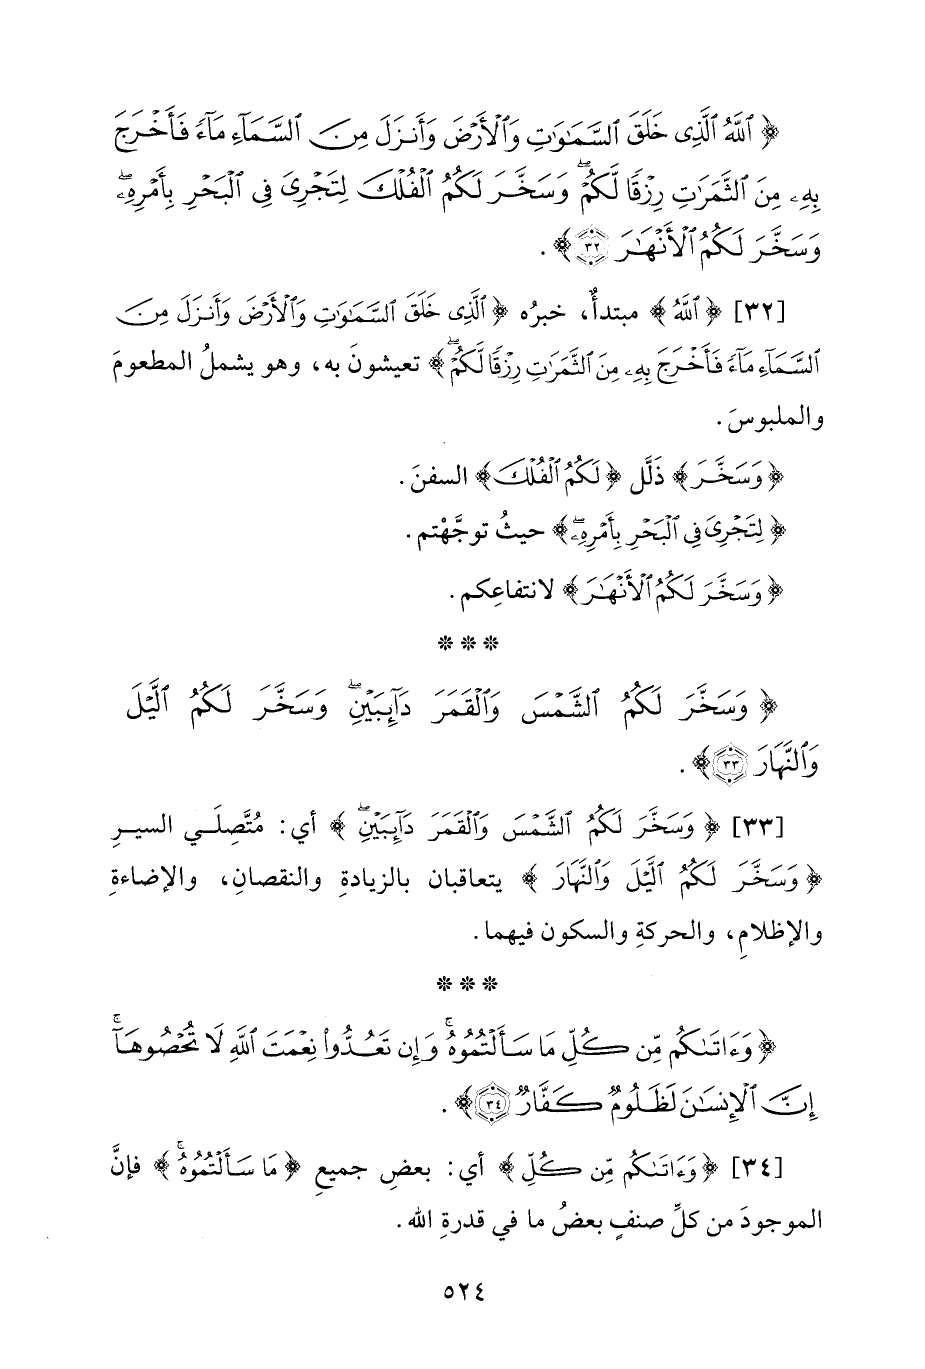 ﴿ ٱللَّهُ ٱلَّذِى خَلَقَ ٱلسَّمَـٰوَٰتِ وَٱلْأَرْضَ وَأَنزَلَ مِنَ ٱلسَّمَآءِ مَآءً فَأَخْرَجَ
بِهِۦ مِنَ ٱلثَّمَرَٰتِ رِزْقًا لَّكُمْ ۖ وَسَخَّرَ لَكُمُ ٱلْفُلْكَ لِتَجْرِىَ فِى ٱلْبَحْرِ بِأَمْرِهِۦ ۖ
وَسَخَّرَ لَكُمُ ٱلْأَنْهَـٰرَ ٣٢ ﴾ .
[٣٢] ﴿ ٱللَّهُ ﴾ مبتدأٌ، خبرُه ﴿ ٱلَّذِى خَلَقَ ٱلسَّمَـٰوَٰتِ وَٱلْأَرْضَ وَأَنزَلَ مِنَ
ٱلسَّمَآءِ مَآءً فَأَخْرَجَ بِهِۦ مِنَ ٱلثَّمَرَٰتِ رِزْقًا لَّكُمْ ۖ ﴾ تعيشونَ به، وهو يشملُ المطعومَ
والملبوسَ.
﴿ وَسَخَّرَ ﴾ ذَلَّل ﴿ لَكُمُ ٱلْفُلْكَ ﴾ السفنَ.
﴿ لِتَجْرِىَ فِى ٱلْبَحْرِ بِأَمْرِهِۦ ۖ ﴾ حيثُ توجَّهْتم.
﴿ وَسَخَّرَ لَكُمُ ٱلْأَنْهَـٰرَ ﴾ لانتفاعِكم.
* * *
﴿ وَسَخَّرَ لَكُمُ ٱلشَّمْسَ وَٱلْقَمَرَ دَآئِبَيْنِ ۖ وَسَخَّرَ لَكُمُ ٱلَّيْلَ
وَٱلنَّهَارَ ٣٣ ﴾ .
[٣٣] ﴿ وَسَخَّرَ لَكُمُ ٱلشَّمْسَ وَٱلْقَمَرَ دَآئِبَيْنِ ۖ ﴾ أي: مُتَّصِلَي السيرِ
﴿ وَسَخَّرَ لَكُمُ ٱلَّيْلَ وَٱلنَّهَارَ ﴾ يتعاقبان بالزيادةِ والنقصانِ، والإضاءةِ
والإظلامِ، والحركةِ والسكون فيهما.
* * *
﴿ وَءَاتَىٰكُم مِّن كُلِّ مَا سَأَلْتُمُوهُ ۚ وَإِن تَعُدُّوا۟ نِعْمَتَ ٱللَّهِ لَا تُحْصُوهَآ ۗ
إِنَّ ٱلْإِنسَـٰنَ لَظَلُومٌ كَفَّارٌ ٣٤ ﴾ .
[٣٤] ﴿ وَءَاتَىٰكُم مِّن كُلِّ ﴾ أي: بعضِ جميعِ ﴿ مَا سَأَلْتُمُوهُ ۚ ﴾ فإنَّ
الموجودَ من كلِّ صنفٍ بعضُ ما في قدرةِ الله.
٥٢٤